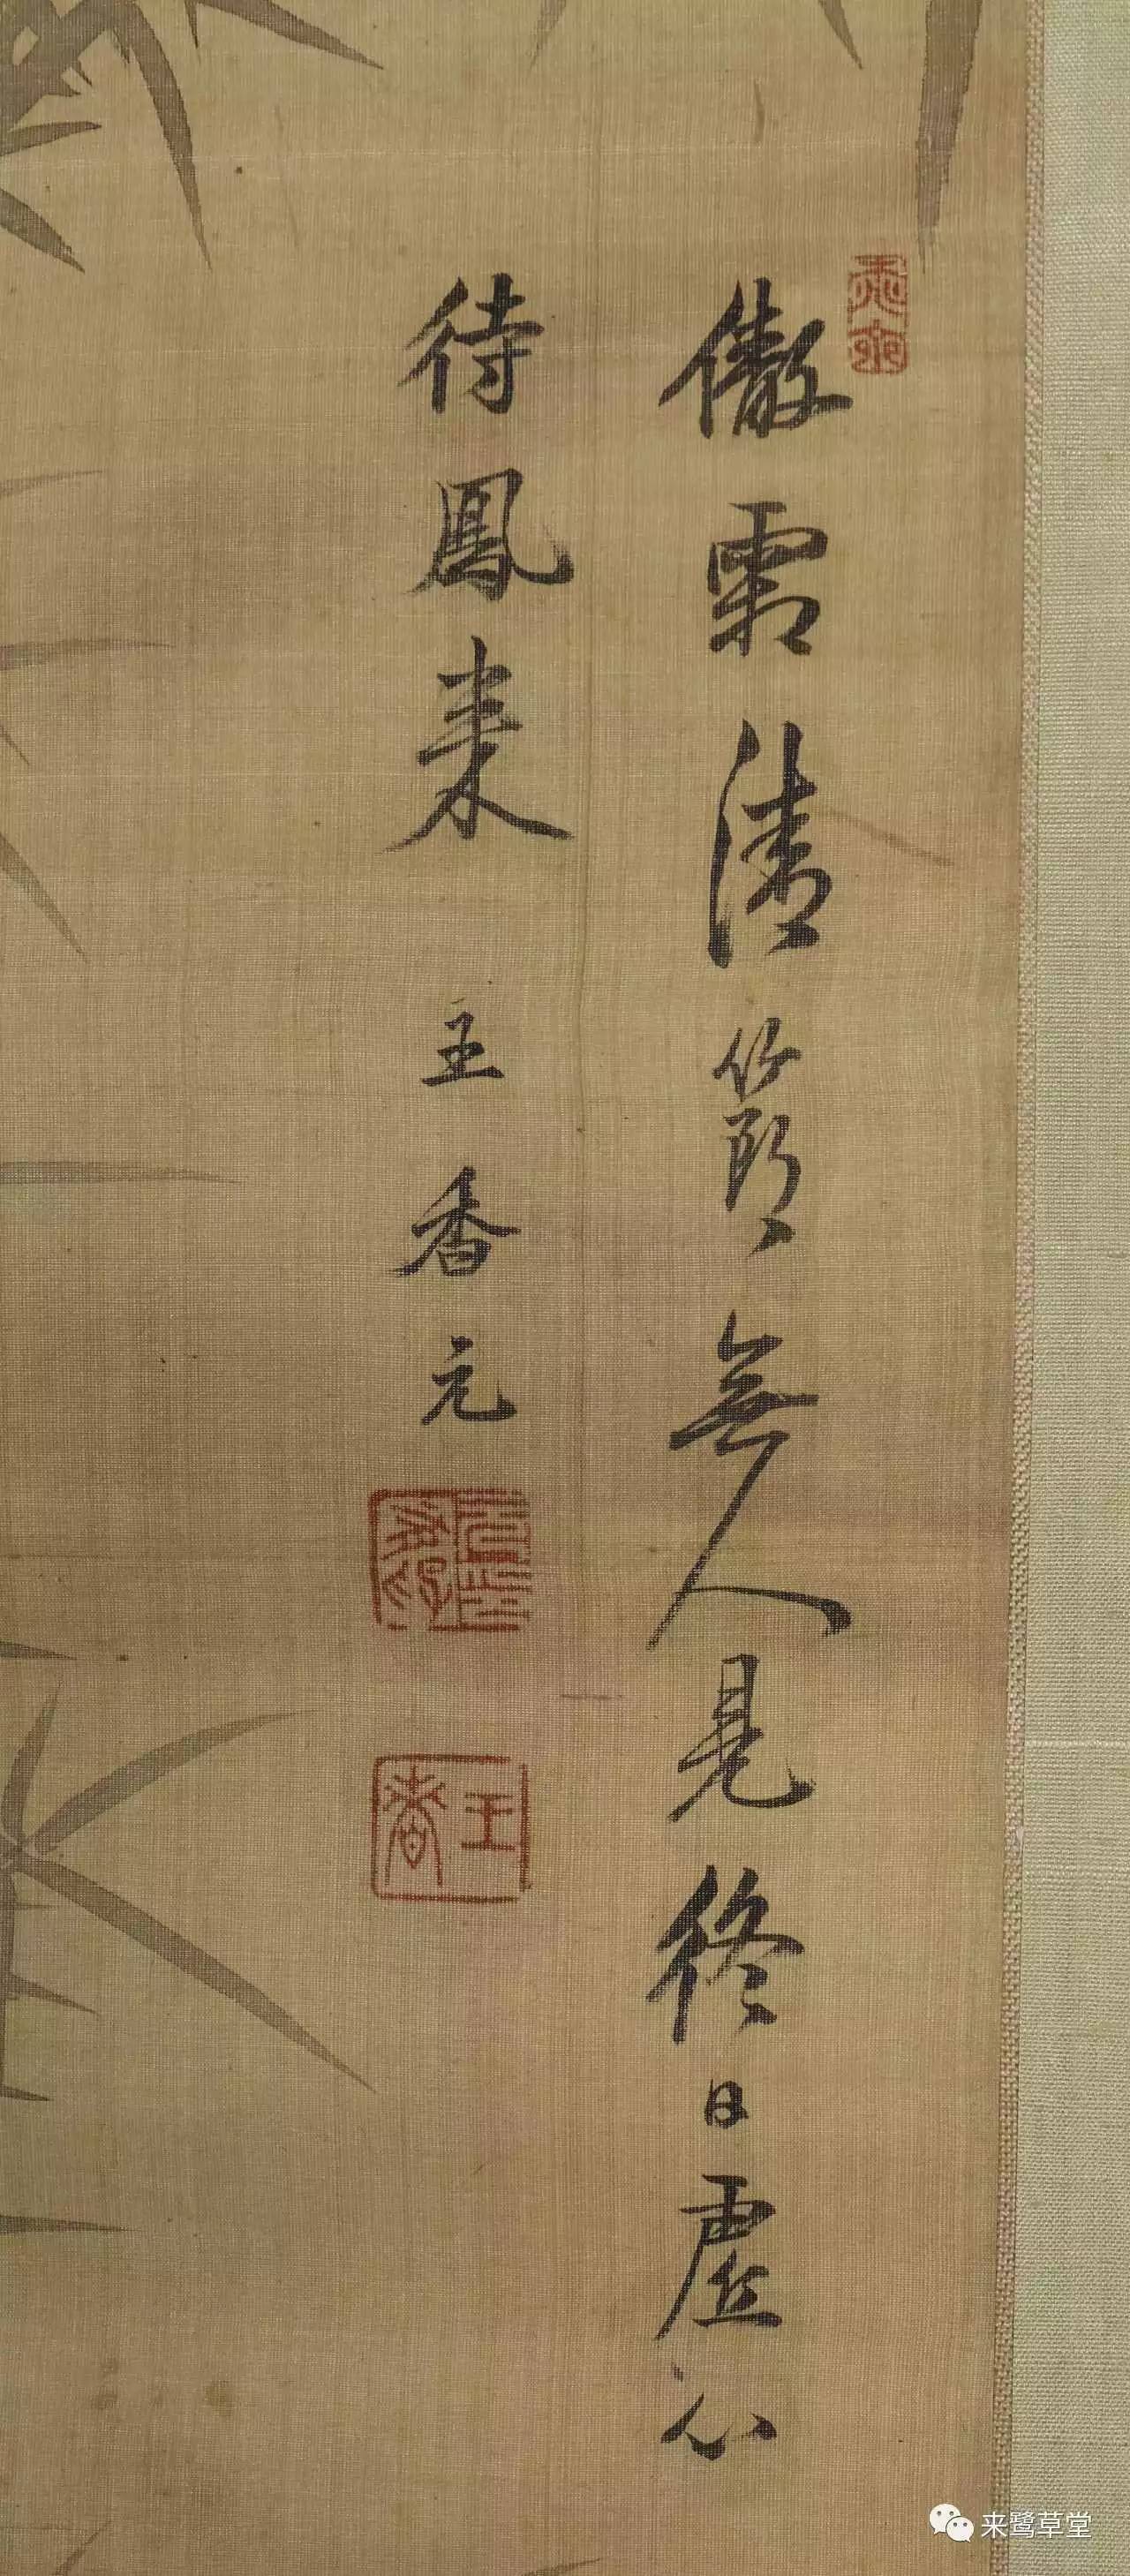 傲霜清節無人見終日虛心
待鳳來 王香元
王香
来鹭草堂